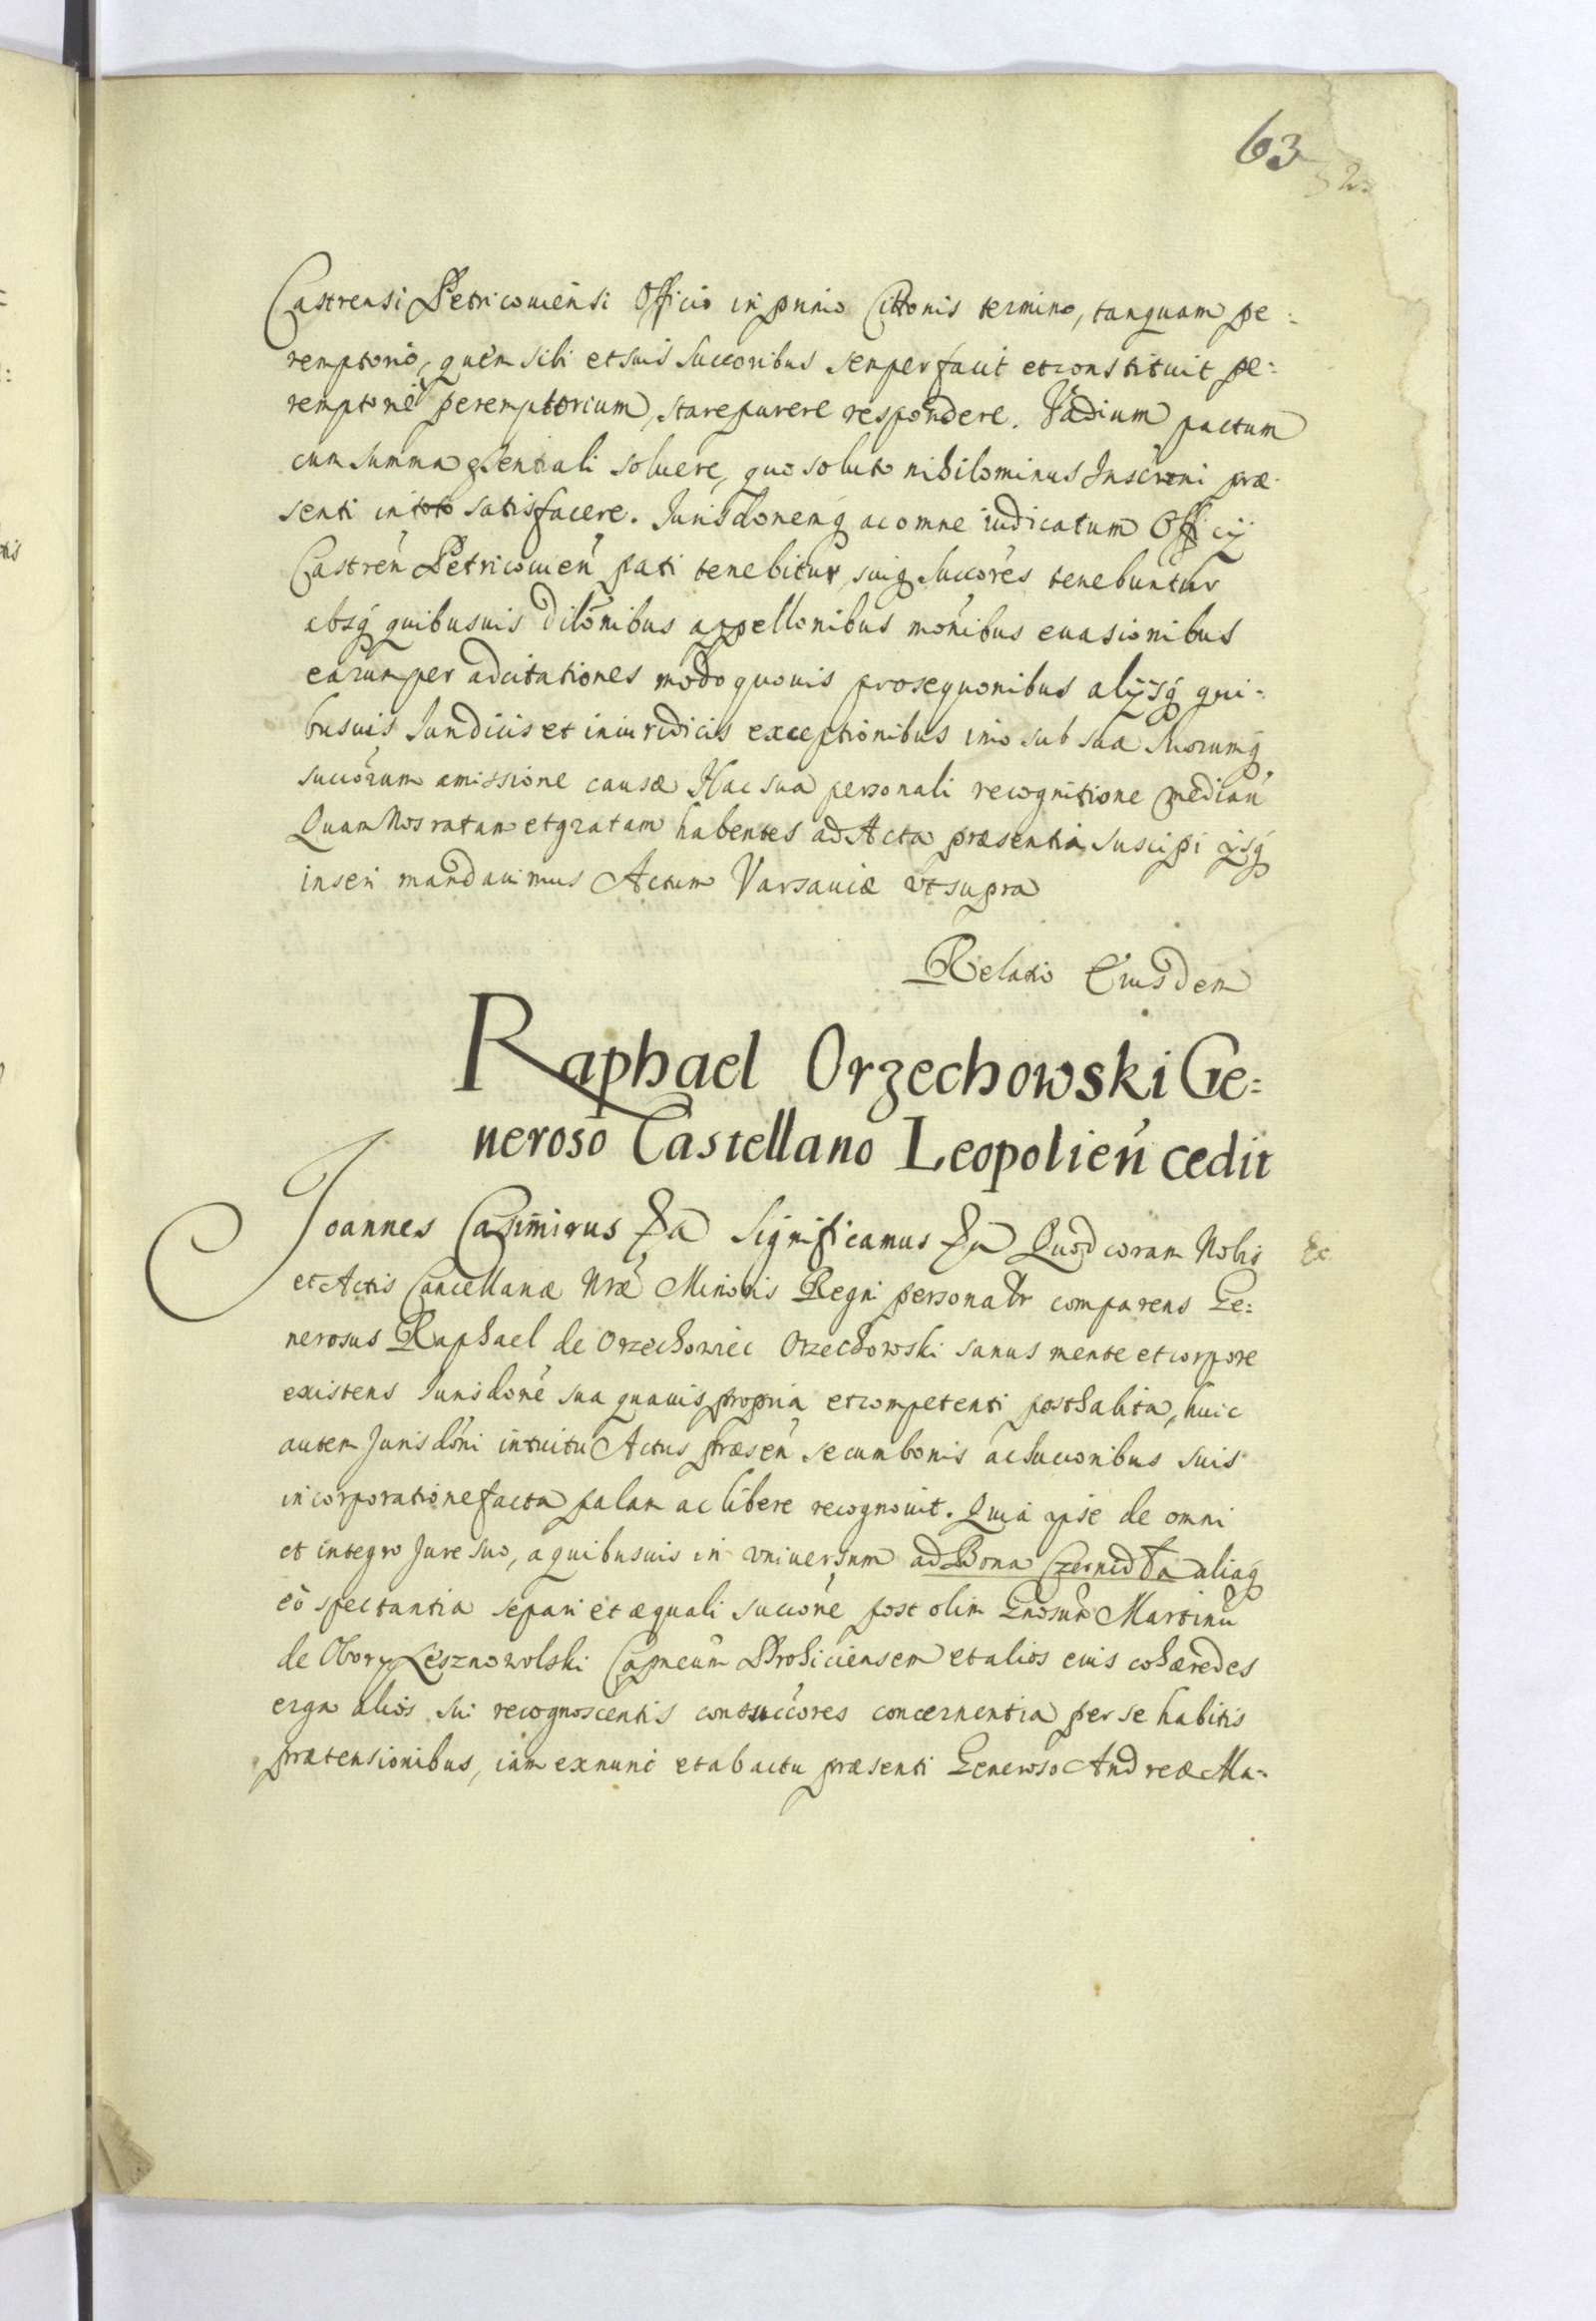 63
32
Castrensi Petricouiensi Officio in primo Cittonis termino, tanquam pe:
remptorio, quem sibi et suis Succoribus semper facit et constituit pe:
remptorie peremptorium, stare parere respondere. Vadium pactum
cum summa pntiali soluere, quo soluto nihilominus Inscroni præ
senti in toto satisfacere. Jurisdonemq ac omne iudicatum Officij
Castren Petricouien pati tenebitur, suiq Succores tenebuntur
absq quibusuis dilonibus appellonibus monibus euasionibus
earum per adcitationes modo quouis prosequonibus alijsq qui:
busuis Juridicis et iniuridicis exceptionibus imo sub sua Suorumq
succorum amissione causæ Hac sua personali recognitione median
Quam Nos ratam et gratam habentes ad Acta præsentia suscipi ijsq
inseri mandauimus Actum Varsauiæ vt supra
Relatio Eiusdem
Raphael Orzechowski Ge:
neroso Castellano Leopolien cedit
Joannes Casimirus &a Significamus &a Quod coram Nobis
Ex
et Actis Cancellariæ Nræ Minoris Regni personalr comparens Ge:
nerosus Raphael de Orzechowiec Orzechowski sanus mente et corpore
existens Jurisdone sua quauis propria et competenti posthabita, huic
autem Jurisdoni intuitu Actus præsen se cum bonis ac succoribus suis
incorporatione facta palam ac libere recognouit. Quia ipse de omni
et integro Jure suo, a quibusuis in vniuersum ad Bona aliaq
eo spectantia se pari et æquali succone post olim Gnosum Martinu
de Obory Lesznowolski Capneum Drohiciensem et alios eius cohæredes
erga alios sui recognoscentis consuccores concernentia per se habitis
prætensionibus, iam ex nunc et ab actu præsenti Generoso Andreæ Ma-